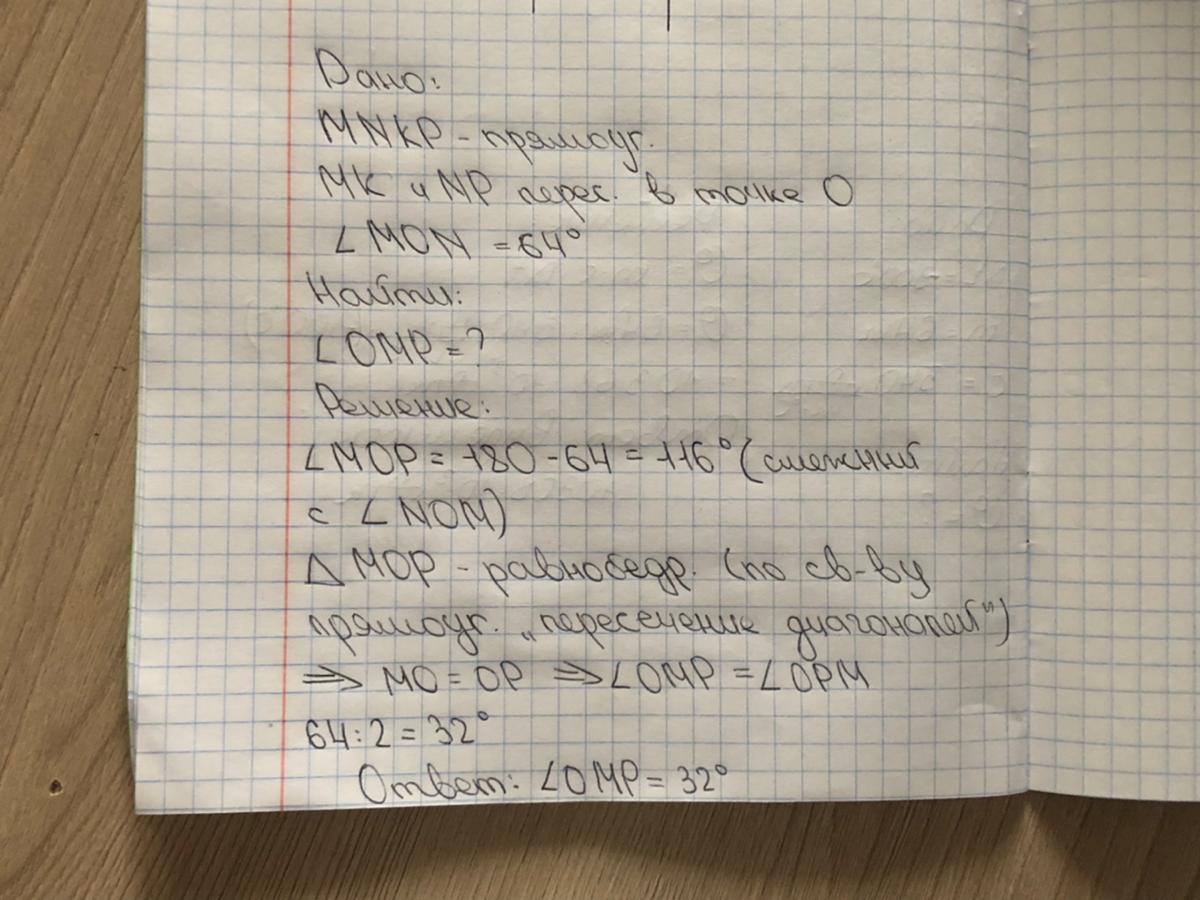 Дано:
MNKP - прямоуг.
MK и NP перес. в точке O
∠MON = 64°
Найти:
∠OMP = ?
Решение:
∠MOP = 180 - 64 = 116° (смежный
с ∠NOM)
△MOP - равнобедр. (по св-ву
прямоуг. „пересечение диагоналей")
⇒ MO = OP ⇒ ∠OMP = ∠OPM
64 : 2 = 32°
Ответ: ∠OMP = 32°